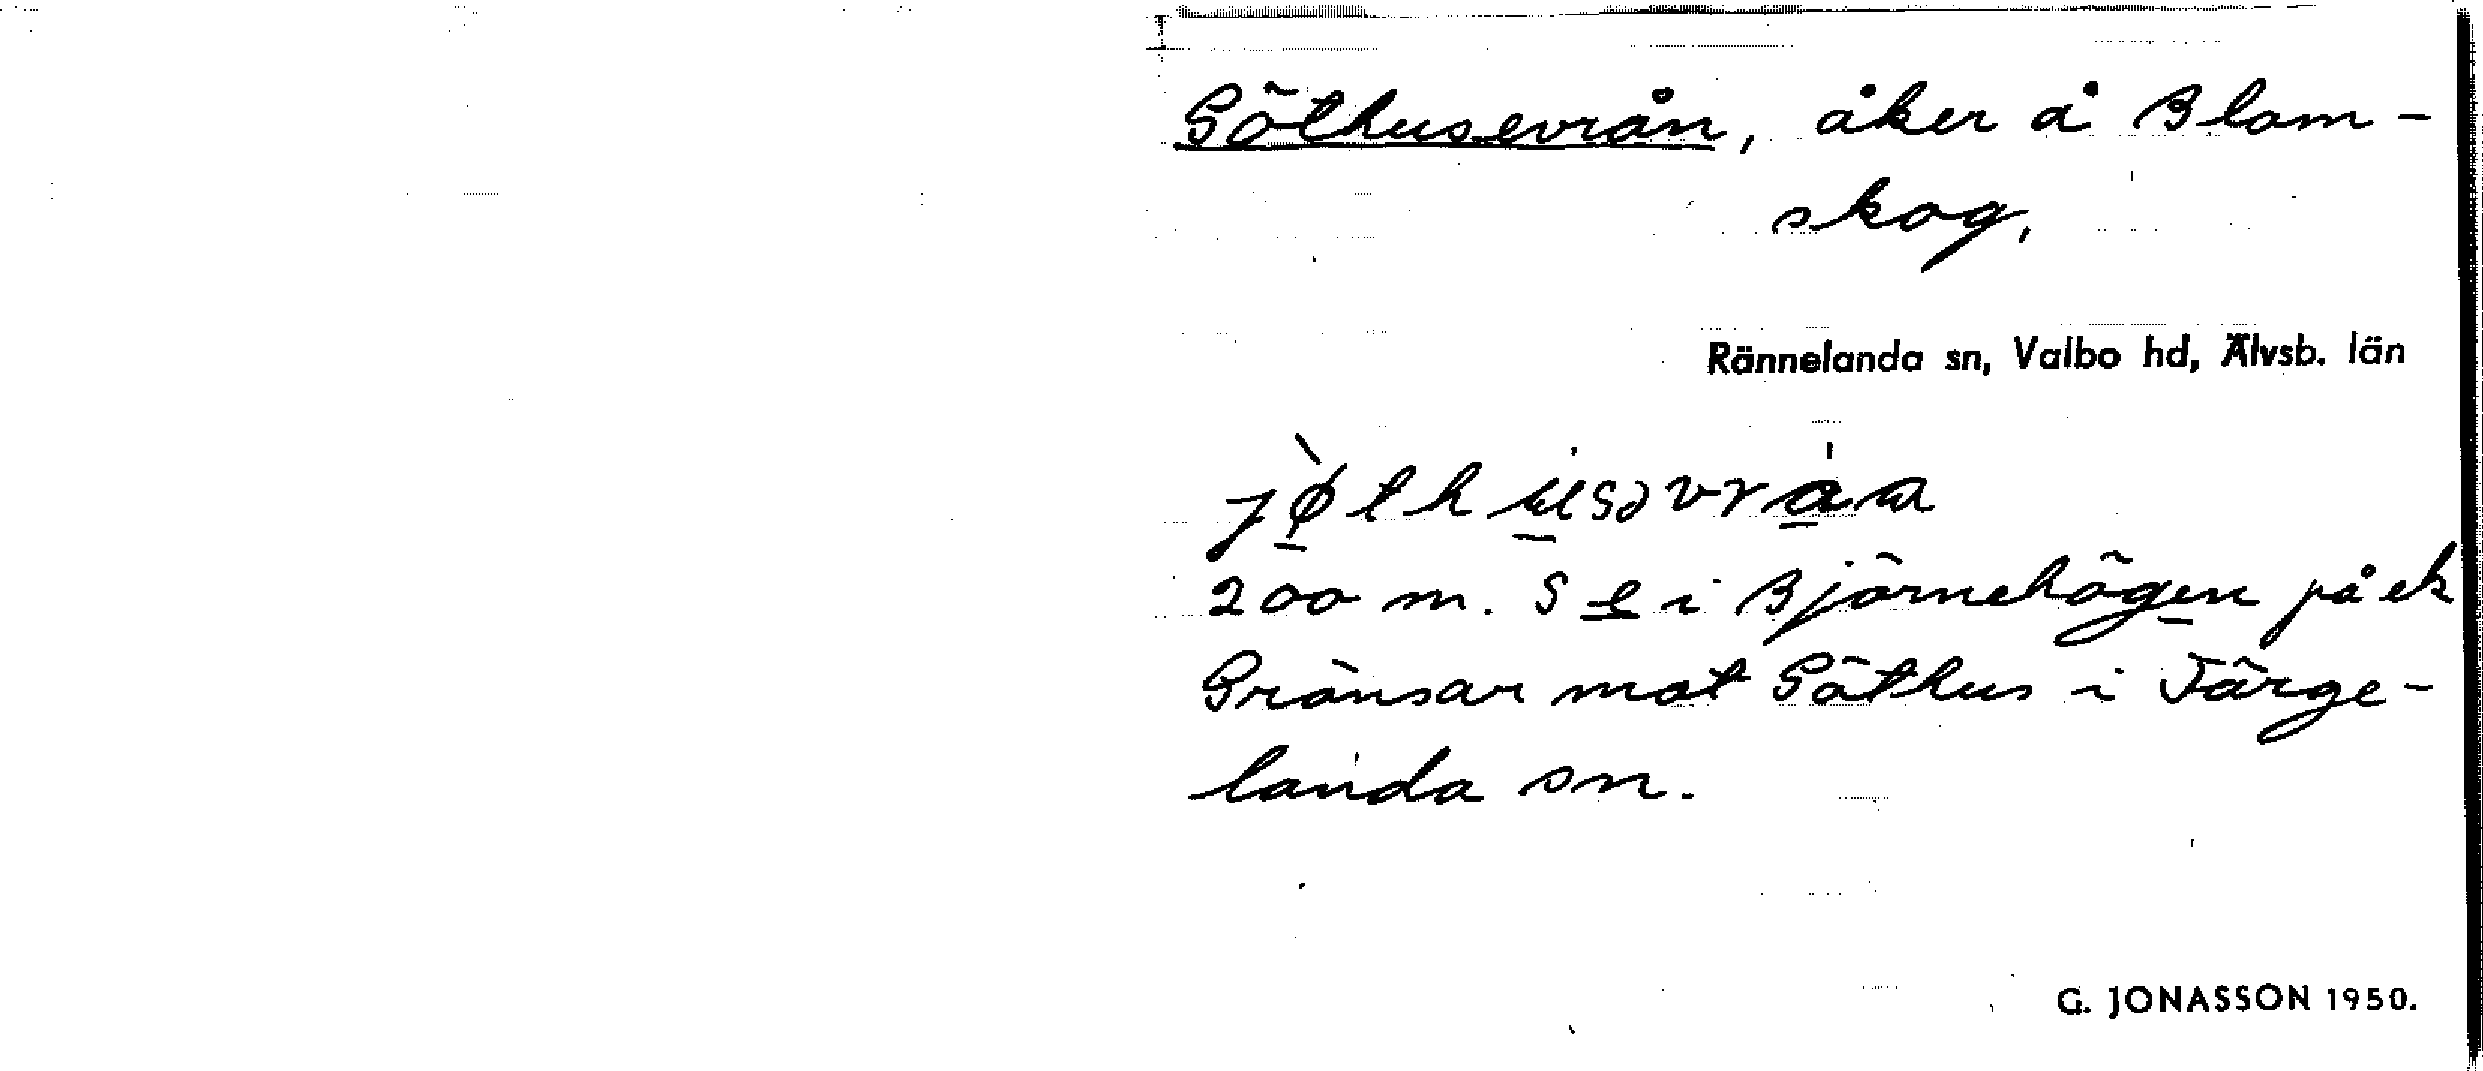 Göthusevrån, åker å Blom-
skog,
Rännelanda sn, Valbo hd, Älvsb. län
200 m. S e i Björnehögen på ek
Gränsar mot Göthus i Färge-
landa sn.
G. JONASSON 1950.